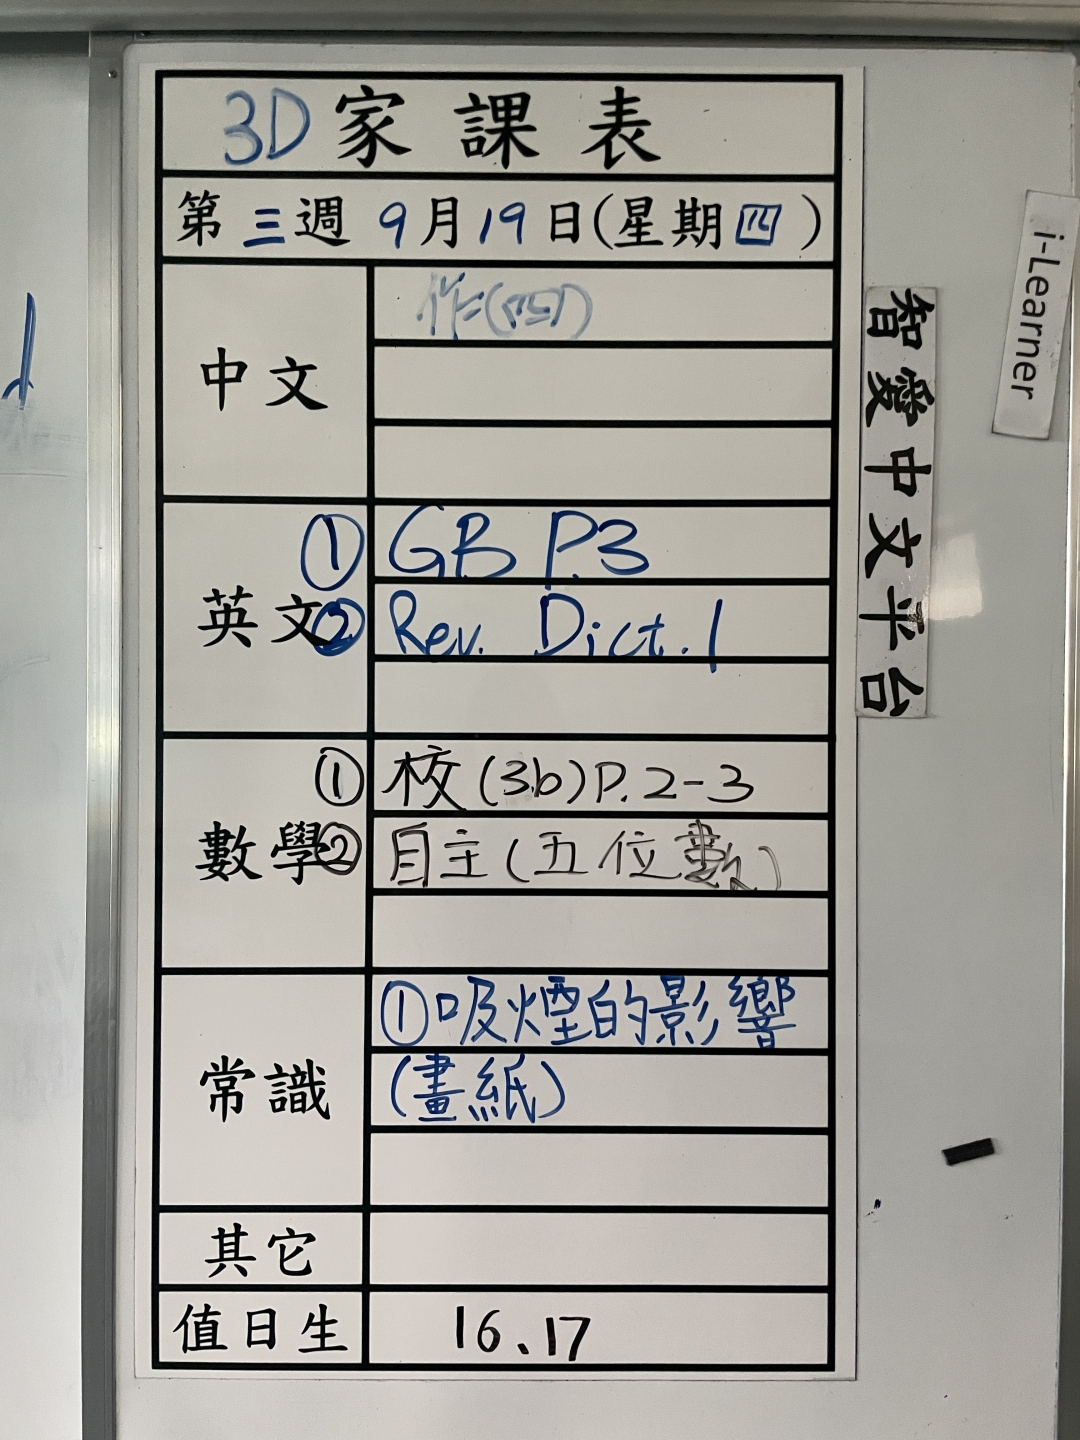 3D 家課表
第三週 9月19日(星期四)
中文
作(四)
英文
① GB P.3
② Rev. Dict. 1
數學
① 校(3b) P.2-3
② 自主(五位數)
常識
①吸煙的影響
(畫紙)
其它
值日生
16、17
智愛中文平台
i-Learner